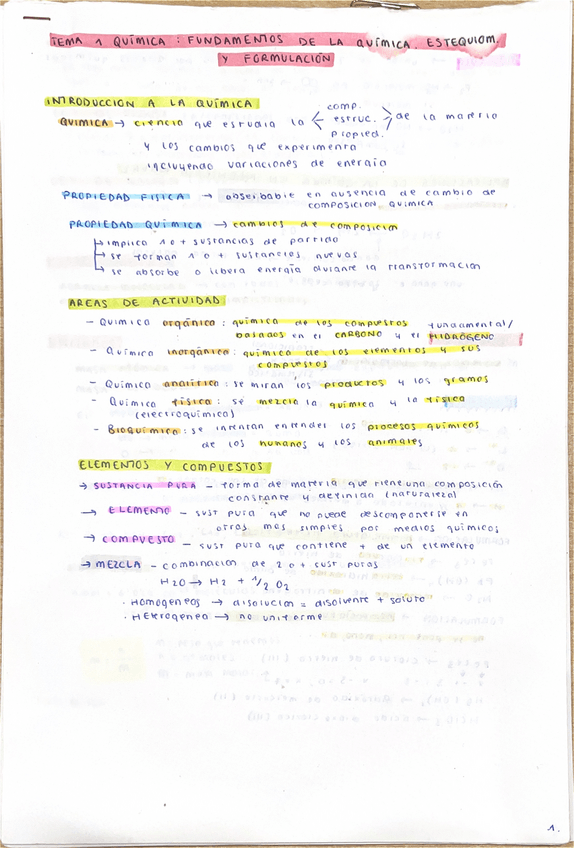 TEMA 1 QUÍMICA : FUNDAMENTOS DE LA QUÍMICA. ESTEQUIOM.
Y FORMULACIÓN
INTRODUCCION A LA QUÍMICA
QUIMICA → ciencia que estudia la < comp. estruc. propied. > de la materia
y los cambios que experimenta
incluyendo variaciones de energia
PROPIEDAD FISICA → obserbable en ausencia de cambio de
COMPOSICION QUIMICA
PROPIEDAD QUIMICA → cambios de composición
↳ implica 1 o + sustancias de partida
↳ se forman 1 o + sustancias nuevas
↳ se absorbe o libera energia durante la transformación
AREAS DE ACTIVIDAD
- Química orgánica : química de los compuestos fundamental/
basados en el CARBONO y el HIDRÓGENO
- Química inorgánica : química de los elementos y sus
compuestos
- Química analítica : se miran los productos y los gramos
- Química física : se mezcla la química y la física
(electroquímica)
- Bioquímica : se intentan entender los procesos químicos
de los humanos y los animales
ELEMENTOS Y COMPUESTOS
→ SUSTANCIA PURA - forma de materia que tiene una composición
constante y definida (naturaleza)
→ ELEMENTO - sust pura que no puede descomponerse en
otras mas simples por medios químicos
→ COMPUESTO - sust pura que contiene + de un elemento
→ MEZCLA - combinación de 2 o + sust puras
H2O → H2 + 1/2 O2
· Homogeneas → disolución = disolvente + soluto
· Hetrogenea → no uniforme
1.